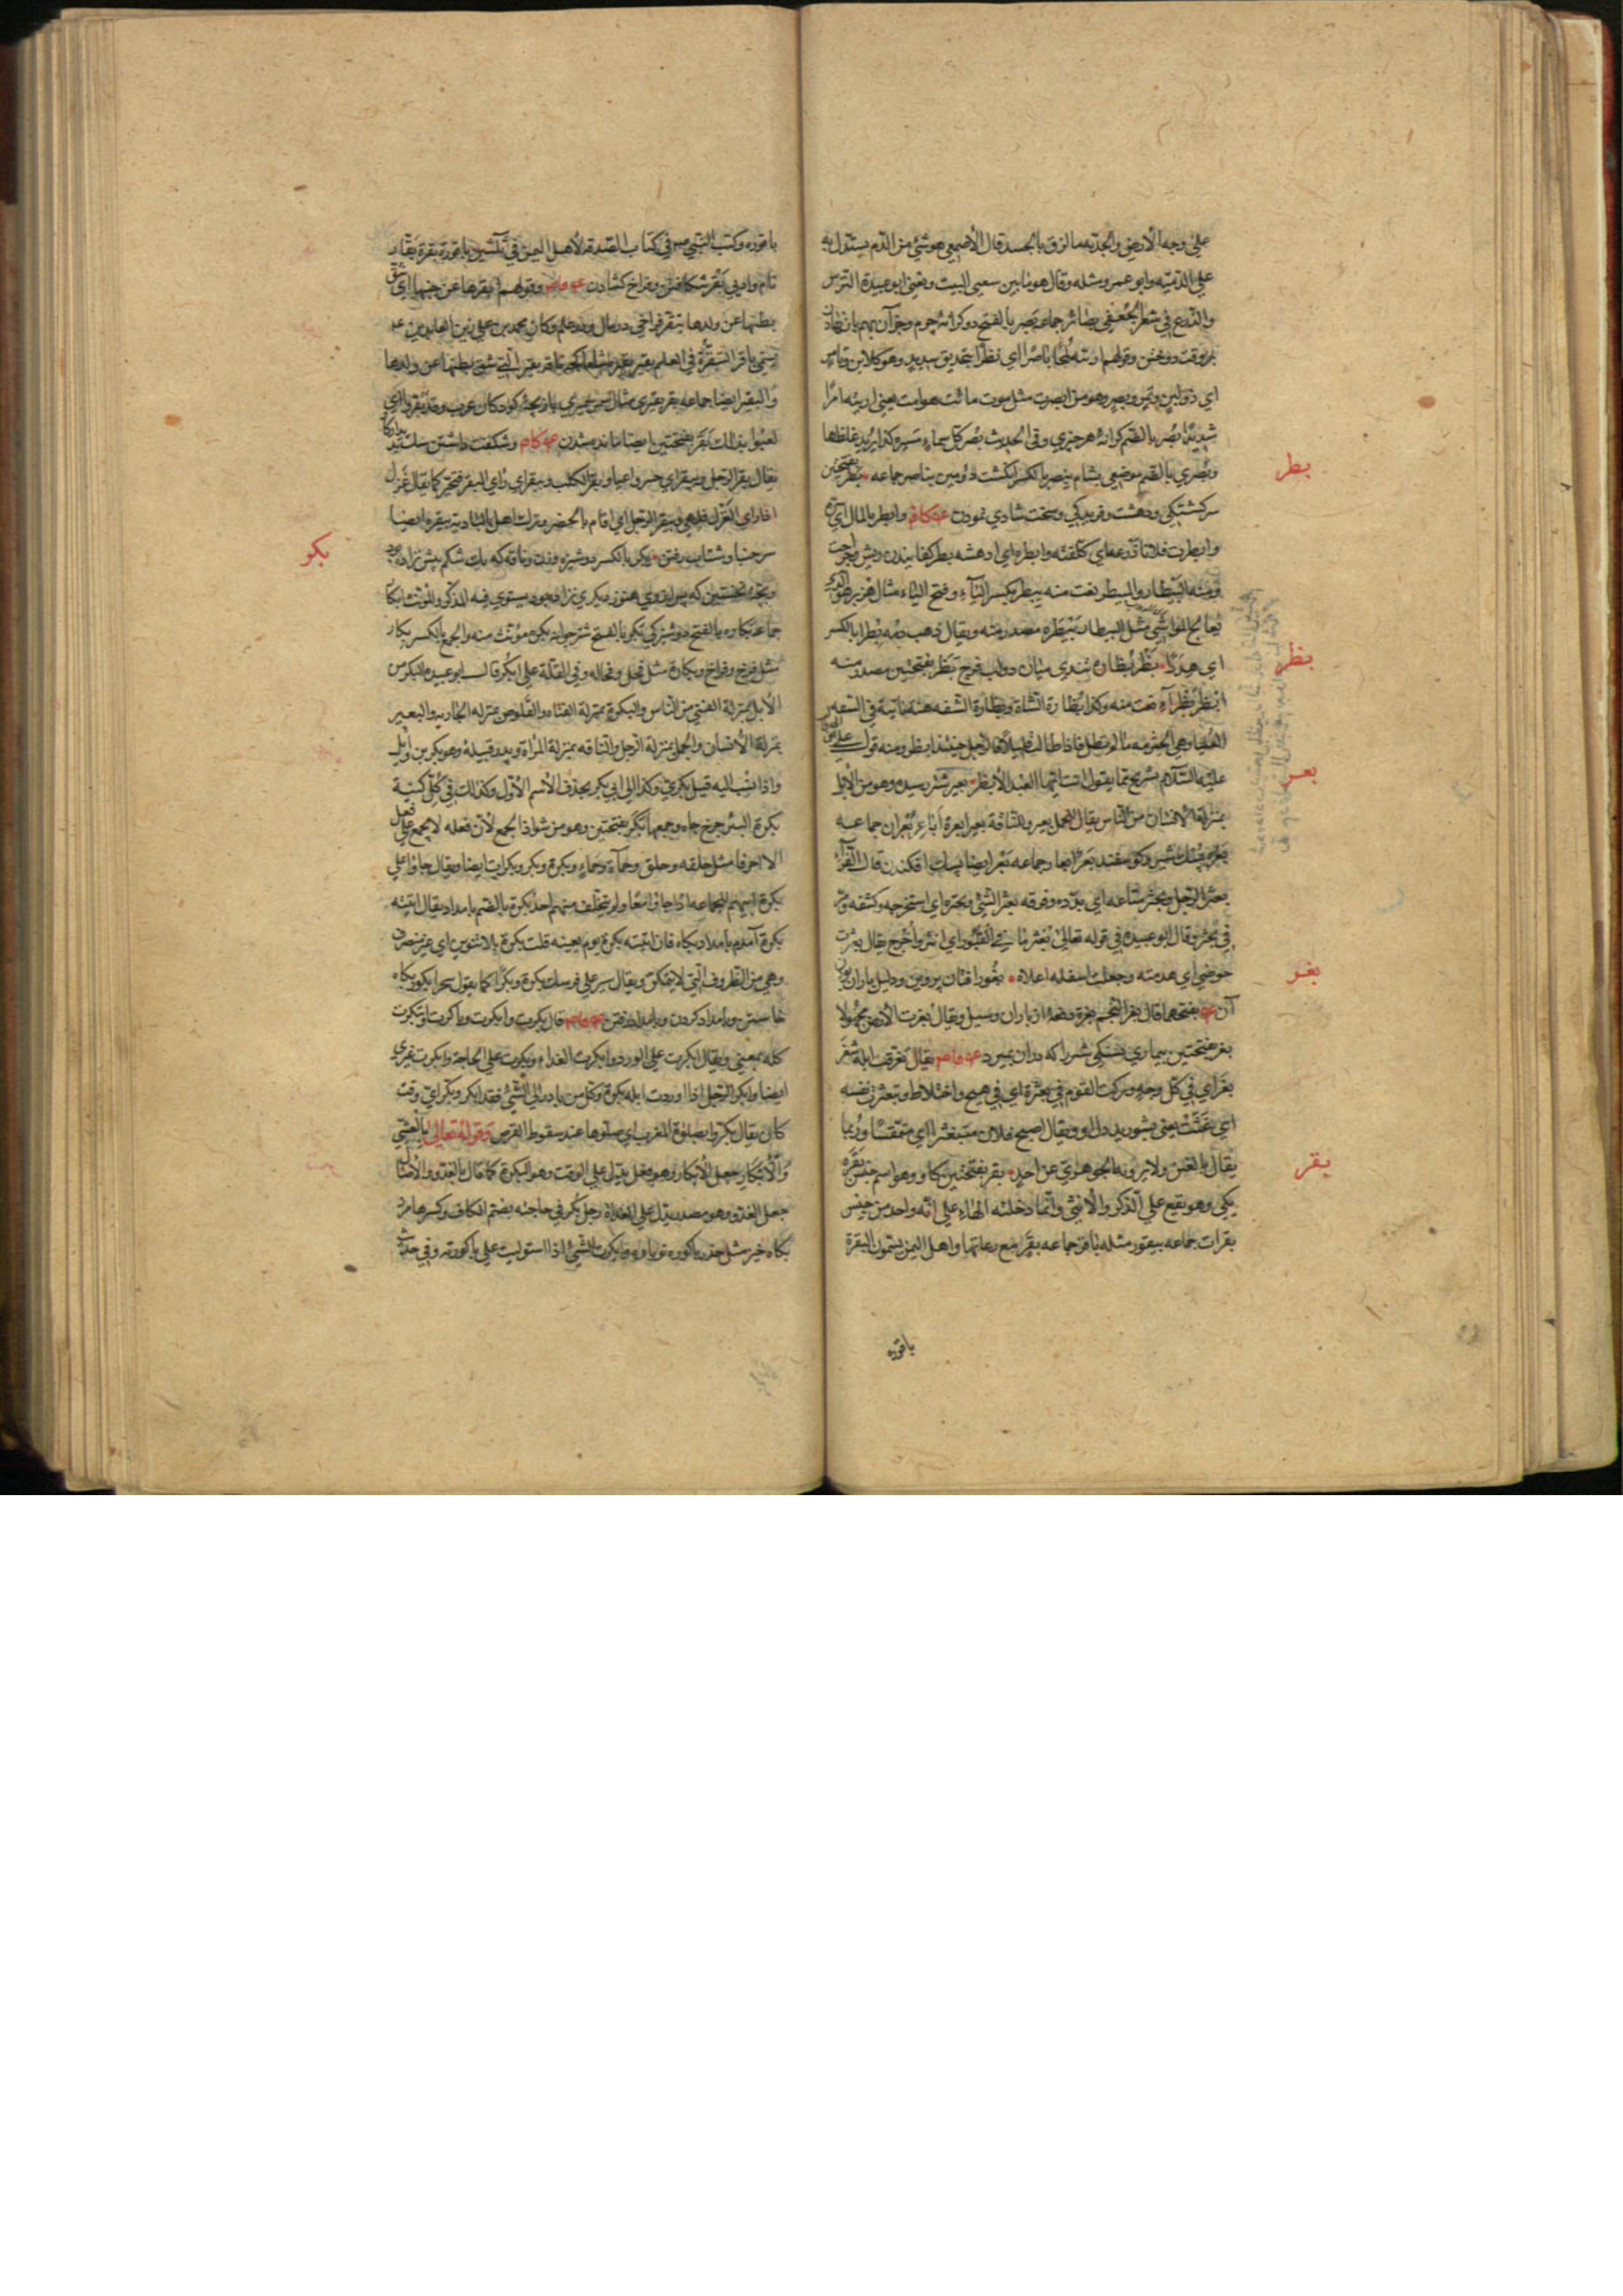 علي وجه الأرض والجدية ما لزق بالجسد قال الأصمعي هو شئ من الدم يستدل به
علي الدمية وابو عمرو مثله وقال هو ما بين سعيي البيت ويعني ابو عبيدة الترس
والدرع في شعر الجعفي بصائر جماعه بصر بالفتح دو كرانهٔ چرم وجز آن بهم باز نهادن
بر وقت دوختن وقولهم اريته لمحا باصرا اي نظرا بتحديق شديد وهو كلابن وتامر
اي ذو لبن وتمر وبصر وهو من ابصرت مثل موت مائت هو امت يعني اريته امرا
شديدا بصر بالضم كرانهٔ هر چيزي وفي الحديث بصر كل سماء مسيرة كذا يريد غلظها
وبصري بالضم موضعي بشام بنصر بالكسر انگشت دومين بناصر جماعه بطر بفتحتين
بطر
سركشتكي ودهشت وفيريدكي وسخت شادي نمودن وابطره المال اي
وابطرت فلانا ذرعه اي كلفته وابطره اي ادهشه بطر كفانيدن ريش وجراحت
ومنه البيطار والبيطر نعت منه يبطر بكسر الباء وفتح الياء مثال هزبر هو الذي
يعالج المواشي مثل البيطار بيطره مصدر منه ويقال ذهب دمه بطرا بالكسر
اي هدرا بظر بظارة تندي ميان دو لب فرج بظر بفتحتين مصدر منه
بظر
ابظر بظراء نعت منه وكذا بظارة الشاة وبظارة الشفه هنة ناتية في الشفه
العليا وهي الحثرمه ما لم تطل فاذا طالت قليلا فالرجل حينئذ ابظر ومنه قول علي
عليه السلام لشريح فما يقول انت ايها العبد الأبظر بعير شتر رسيده وهو من الأبل
بعر
بمنزلة الأنسان من الناس يقال للجمل بعير وللناقة بعير ابعرة اباعر بعران جماعه
بعر پشك شتر وكوسفند بعرة ابعار جماعه بعر ايضا پشك افكندن قال الفراء
بعثر الرجل وبحثر متاعه اي بدده وفرقه بعثر الشئ وبحثره اي استخرجه وكشفه
وقال ابو عبيدة في قوله تعالي بعثر ما في القبور اي انثر واخرج يقال بعثرت
حوضي اي هدمته وجعلت اسفله اعلاه بغور افتادن پروين ودليل باران بودن
بغر
آن بفتحهما قال بغر النجم بغرة دفعهٔ از باران وسيل ويقال بغرت الأرض مجهولا
بغر بفتحتين بيماري تشنكي شتر را كه دران بميرد يقال تفرقت ابله شغر
بغر اي في كل وجه وتركت القوم في بعثرة اي في هيج واختلاط وتبعثرت نفسه
اي غثت يعني بشوريد دل او ويقال اصبح فلان متبغثرا اي متمقسا وربما
يقال بالعين ولا يرويه الجوهري عن احد بقر بفتحتين كاو وهو اسم جنس بقره
بقر
يكي وهو يقع علي الذكر والأنثي وانما دخلته الهاء علي انه واحد من جنس
بقرات جماعه بيقور مثله باقر جماعه بقر مع رعاتها واهل اليمن يسمون البقرة
باقوره
باقوره وكتب النبي في كتاب الصدقة لأهل اليمن في ثلثين باقورة بقرة بقار
نام وادي بقر شكافتن وفراخ كشادن وقولهم ابقرها عن جنبها اي شق
بطنها عن ولدها تبقر فراخي در مال ودر علم وكان محمد بن علي بن زين العابدين
يسمي باقر التبقره في العلم بقير ناقه بقير التي شق بطنها عن ولدها
والبقير ايضا جماعه بقر بقيري بازيچهٔ كودكان عرب وقد بقروا اي
لعبوا بذلك بقر بفتحتين ايضا مانده شدن وشكفت داشتن
يقال بقر الرجل ويبقر اي حسر واعيا وبقر الكلب وبيقر اي راي البقر فتحير كما يقال غزل
اذا راي الغزال فلهي وبيقر الرجل اي اقام بالحضر وترك اهله بالبادية بيقره ايضا
سر جنبا وشتاب رفتن بكر بالكسر دوشيزه وزن وناقه كه يك شكم بيش نزاده بود
بكر
وبچهٔ نخستين كه پس ازوي هنوز ديكري نزاده بود يستوي فيه المذكر والمونث ابكار
جماعه بكاره بالفتح دوشيزكي بكر بالفتح شتر جوانه بكره مونث منه والجمع بالكسر بكار
مثل فرخ وفراخ وبكارة مثل فحل وفحاله وفي القلة علي ابكر قال ابو عبيده البكر من
الأبل بمنزلة الفتي من الناس والبكرة بمنزلة الفتاه والقلوص بمنزلة الجاريه والبعير
بمنزلة الأنسان والجمل بمنزلة الرجل والناقه بمنزلة المرأة وبدر قبيلة وهو بكر بن وايل
واذا نسب اليه قيل بكري وكذا الي ابي بكر بحذف الأسم الأول وكذلك في كل كنية
بكرة البئر چرخ چاه وجمعها بكر بفتحتين وهو من شواذ الجمع لأن فعله لا يجمع علي فعل
الا احرفا مثل حلقه وحلق وحمأة وحماء وبكرة وبكر وبكرات ايضا ويقال جاؤا علي
بكرة ابيهم للجماعه اذا جاؤا معا ولم يتخلف منهم احد بكرة بالضم بامداد يقال اتيته
بكرة آمدم بامداد پكاه فان اتيته بكرة يوم بعينه قلت بكرة بلا تنوين اي غير منصرف
وهي من الظروف التي لا تتمكن ويقال سير علي فرسك بكرة وبكرا كما يقول سحرا بكور پكاه
خاستن وبامداد كردن وبامداد رفتن قال بكرت وابكرت وباكرت وبتكرت
كله بمعني ويقال ابكرت علي الورد وابكرت الغداء وبكرت علي الحاجة وابكرت غيري
ايضا وابكر الرجل اذا اوردت ابله بكرة وكل من بادر الي الشئ فقد ابكر وبكر اي وقت
كان يقال بكروا بصلوة المغرب اي صلوها عند سقوط القرص وقوله تعالي بالعشي
والأبكار جعل الأبكار وهو فعل يدل علي الوقت وهو البكرة كما قال بالغدو والأصال
جعل الغدو وهو مصدر يدل علي الغداة رجل بكر في حاجته بضم الكاف وكسرها مرد
پكاه خيز مثل حذر باكوره نوباوه وابتكرت الشئ اذا استوليت علي باكورته وفي حديث